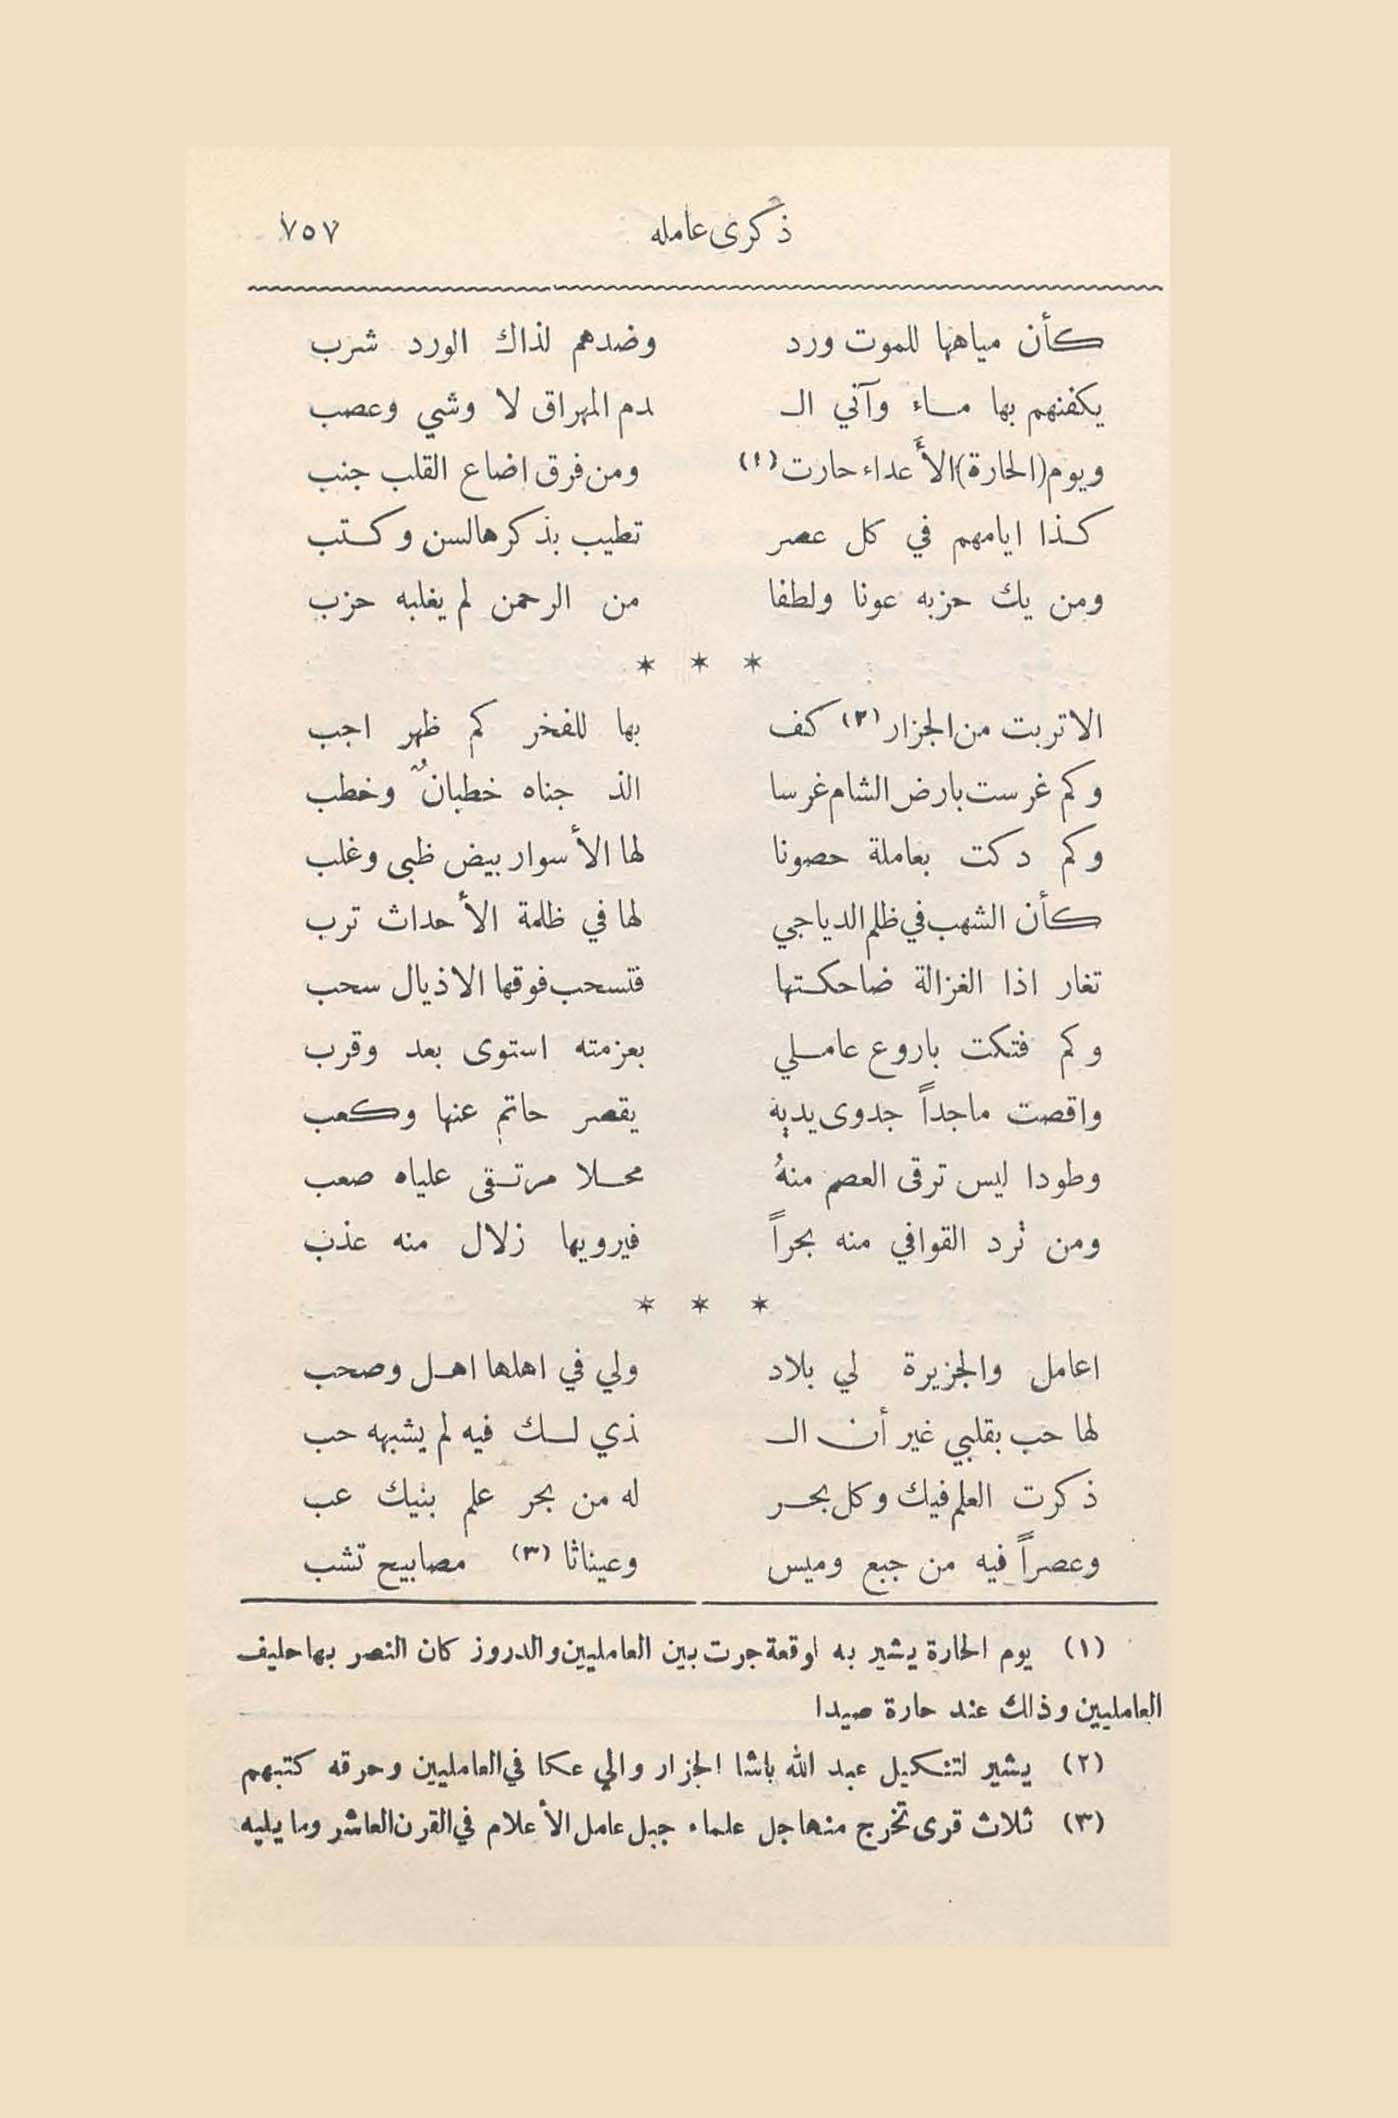 ذكرى عامله ٧٥٧
كأن مياهها للموت ورد وضدهم لذاك الورد شرب
يكفنهم بها ماء وآني الـ ـدم المهراق لا وشي وعصب
ويوم (الحارة) الأعداء حارت (١) ومن فرق اضاع القلب جنب
كذا ايامهم في كل عصر تطيب بذكرها السن وكتب
ومن يك حزبه عونا ولطفا من الرحمن لم يغلبه حزب
* * *
الا تربت من الجزار (٢) كف بها للفخر كم ظهر اجب
وكم غرست بارض الشام غرسا الذ جناه خطبان وخطب
وكم دكت بعاملة حصونا لها الأسوار بيض ظبى وغلب
كأن الشهب في ظلم الدياجي لها في ظلمة الأحداث ترب
تغار اذا الغزالة ضاحكتها فتسحب فوقها الاذيال سحب
وكم فتكت باروع عاملي بعزمته استوى بعد وقرب
واقصت ماجداً جدوى يديه يقصر حاتم عنها وكعب
وطودا ليس ترقى العصم منهُ محلا مرتقى علياه صعب
ومن ترد القوافي منه بحراً فيرويها زلال منه عذب
* * *
اعامل والجزيرة لي بلاد ولي في اهلها اهل وصحب
لها حب بقلبي غير أن الـ ـذي لك فيه لم يشبهه حب
ذكرت العلم فيك وكل بحر له من بحر علم بنيك عب
وعصراً فيه من جبع وميس وعيناثا (٣) مصابيح تشب
(١) يوم الحارة يشير به لوقعة جرت بين العامليين والدروز كان النصر بها حليف
العامليين وذلك عند حارة صيدا
(٢) يشير لتنكيل عبد الله باشا الجزار والي عكا في العامليين وحرقه كتبهم
(٣) ثلاث قرى تخرج منها جل علماء جبل عامل الأعلام في القرن العاشر وما يليه